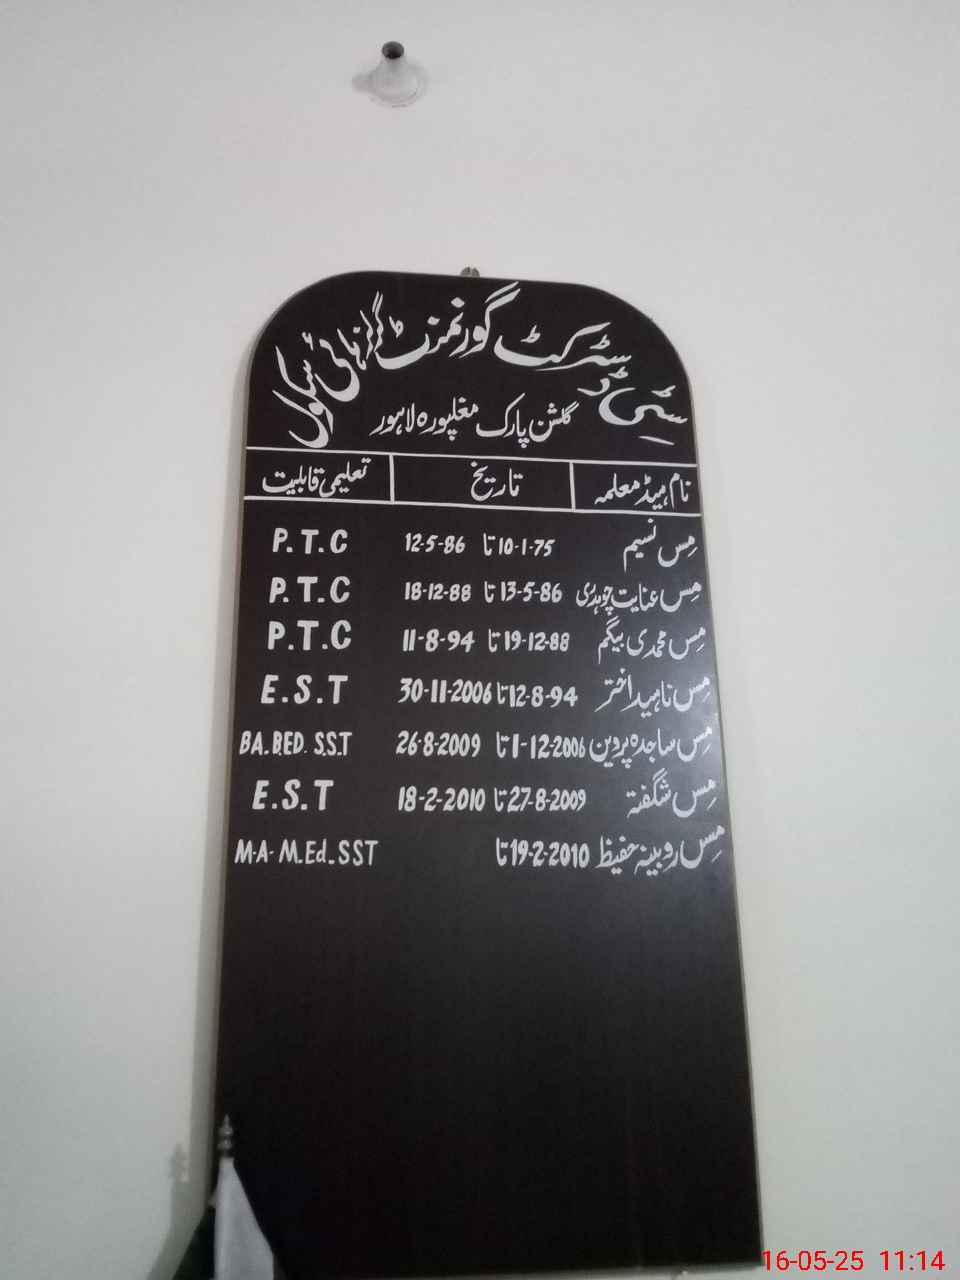 سٹی ڈسٹرکٹ گورنمنٹ گرلز ہائی سکول
گلشن پارک مغلپورہ لاہور
نام ہیڈ معلمہ تاریخ تعلیمی قابلیت
مِس نسیم 10-1-75 تا 12-5-86 P.T.C
مِس عنایت چوہدری 13-5-86 تا 18-12-88 P.T.C
مِس محمدی بیگم 19-12-88 تا 11-8-94 P.T.C
مِس ناہید اختر 12-8-94 تا 30-11-2006 E.S.T
مِس ساجدہ پروین 1-12-2006 تا 26-8-2009 BA.BED. S.S.T
مِس شگفتہ 27-8-2009 تا 18-2-2010 E.S.T
مِس روبینہ حفیظ 19-2-2010 تا M-A- M.Ed.SST
16-05-25 11:14